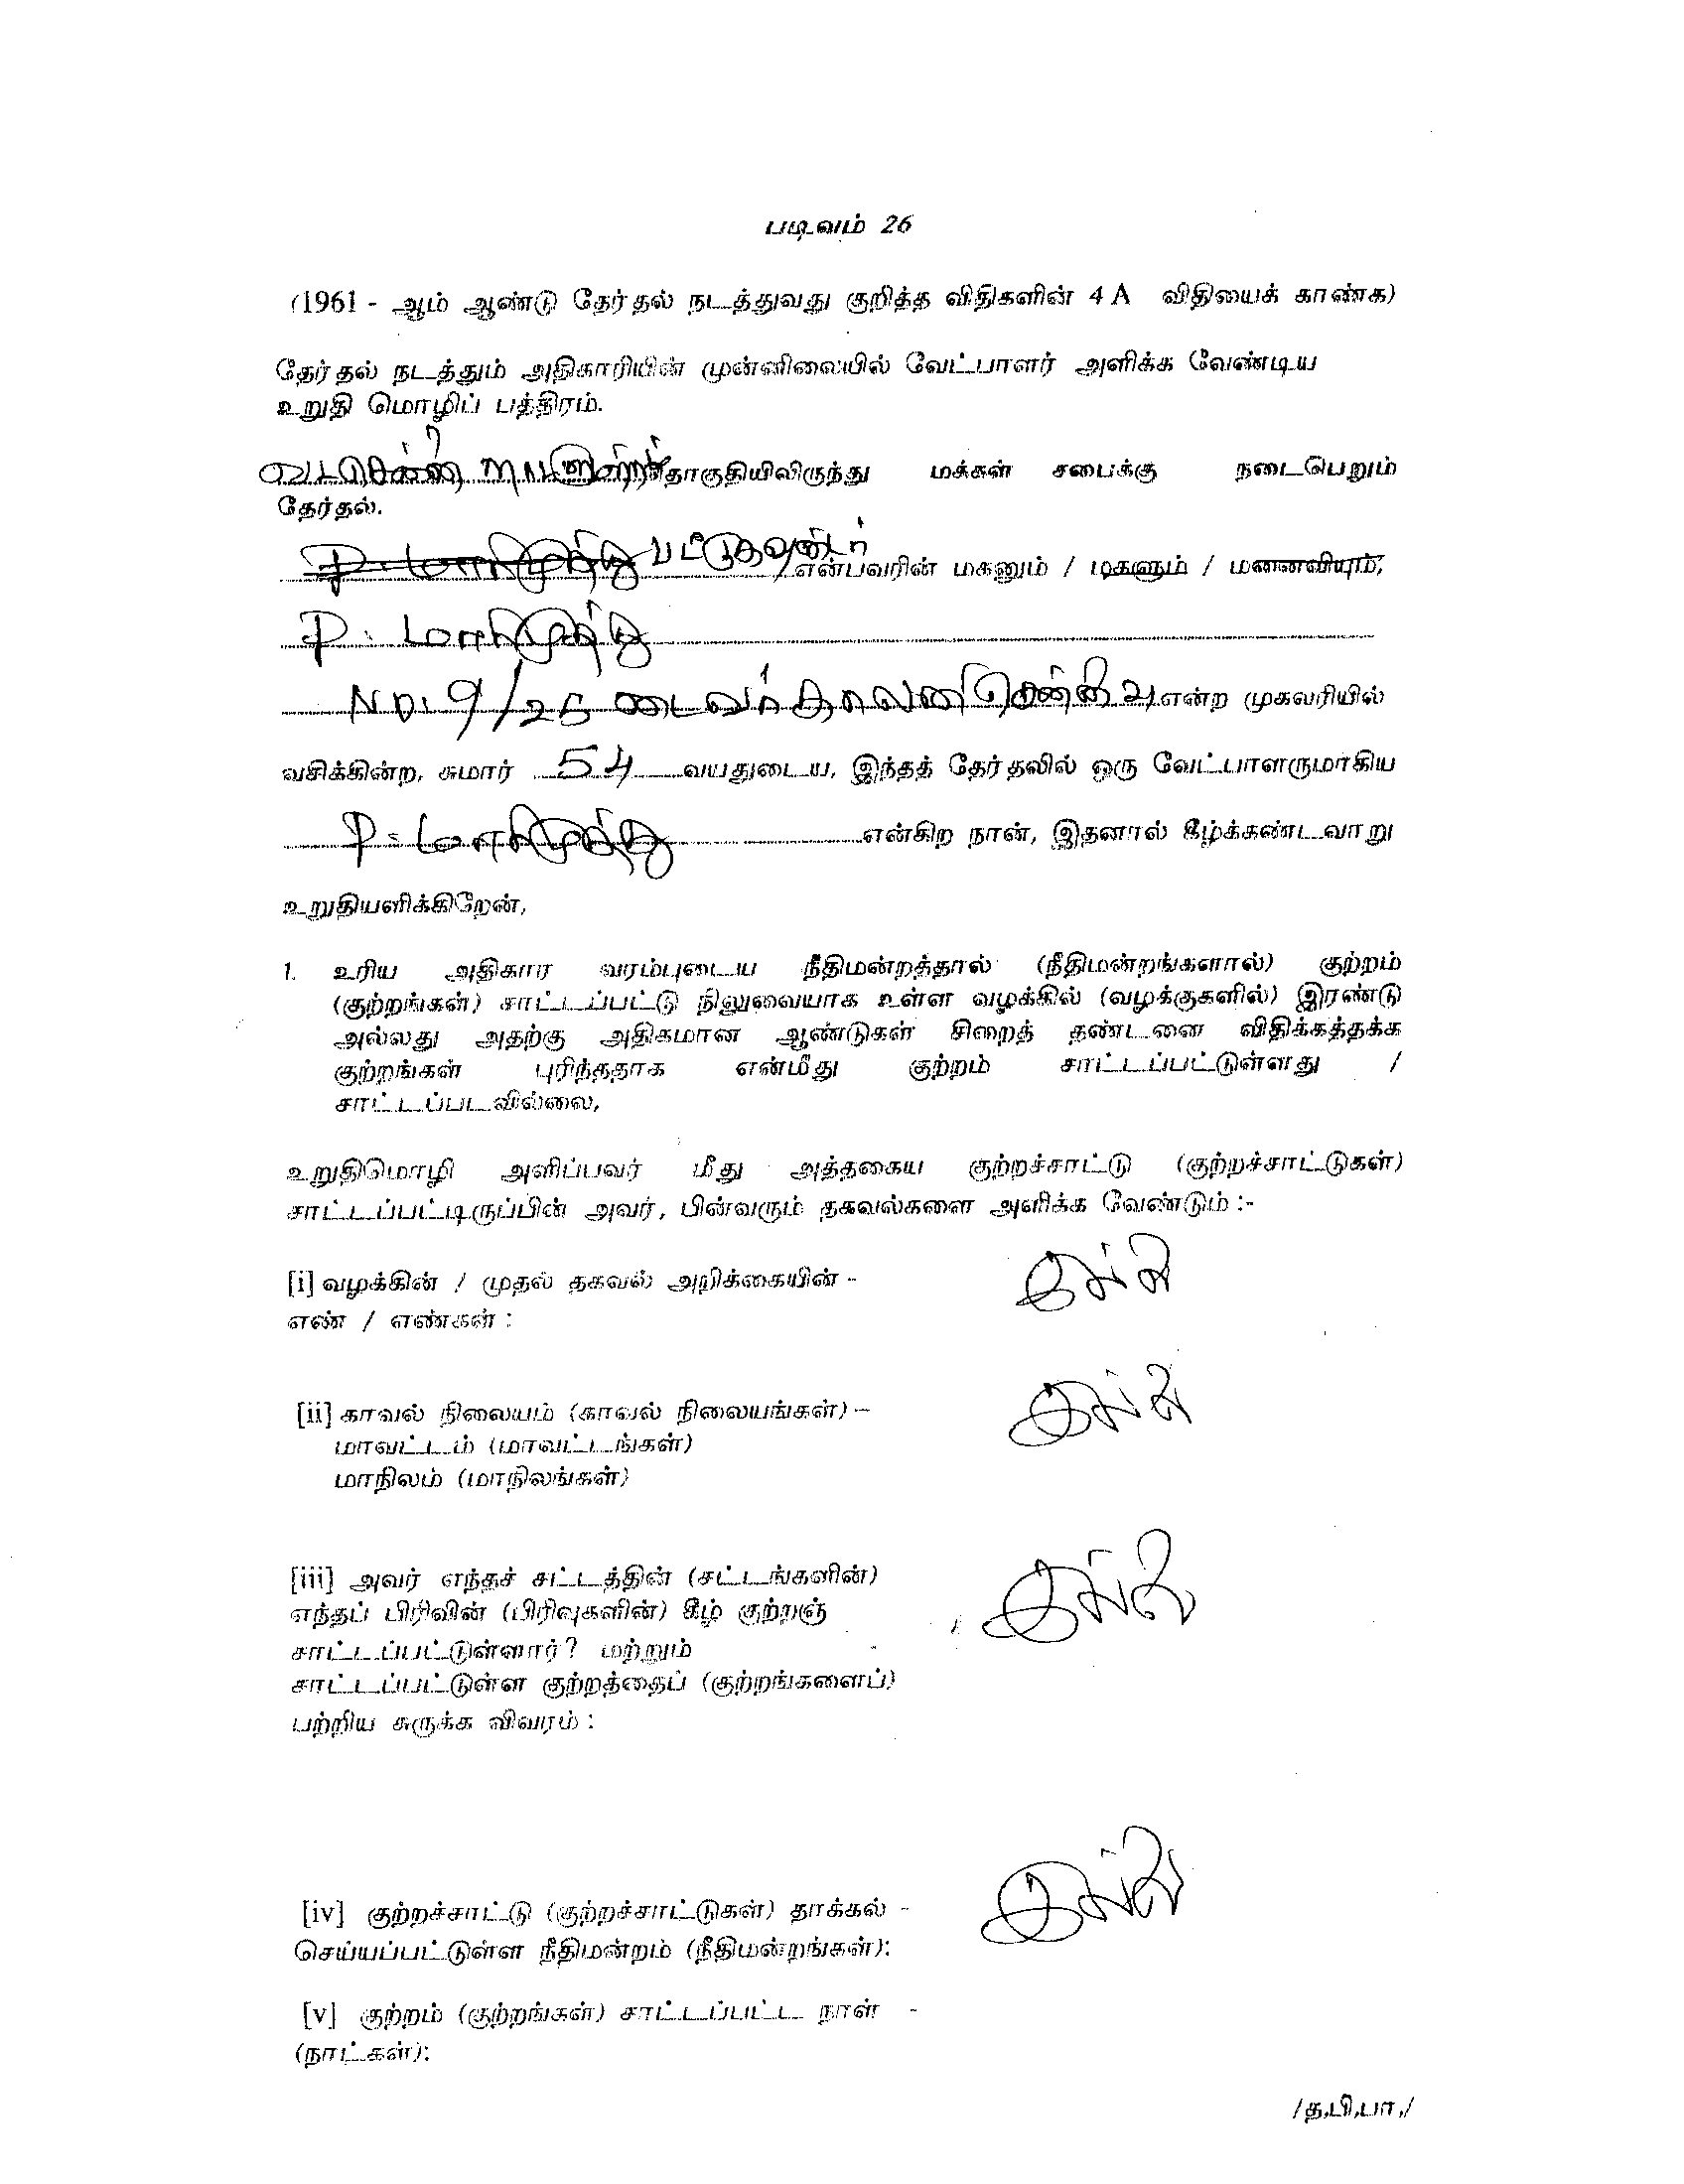 படிவம் 26
(1961 - ஆம் ஆண்டு தேர்தல் நடத்துவது குறித்த விதிகளின் 4 A விதியைக் காண்க)
தேர்தல் நடத்தும் அதிகாரியின் முன்னிலையில் வேட்பாளர் அளிக்க வேண்டிய
உறுதி மொழிப் பத்திரம்.
தொகுதியிலிருந்து மக்கள் சபைக்கு நடைபெறும்
தேர்தல்.
P. மாரிமுத்து பட்டுகவுண்டர் என்பவரின் மகனும் / மகளும் / மனைவியும்,
P. மாரிமுத்து
NO. 9/25 என்ற முகவரியில்
வசிக்கின்ற, சுமார் 54 வயதுடைய, இந்தத் தேர்தலில் ஒரு வேட்பாளருமாகிய
P. மாரிமுத்து என்கிற நான், இதனால் கீழ்க்கண்டவாறு
உறுதியளிக்கிறேன்,
1. உரிய அதிகார வரம்புடைய நீதிமன்றத்தால் (நீதிமன்றங்களால்) குற்றம்
(குற்றங்கள்) சாட்டப்பட்டு நிலுவையாக உள்ள வழக்கில் (வழக்குகளில்) இரண்டு
அல்லது அதற்கு அதிகமான ஆண்டுகள் சிறைத் தண்டனை விதிக்கத்தக்க
குற்றங்கள் புரிந்ததாக என்மீது குற்றம் சாட்டப்பட்டுள்ளது /
சாட்டப்படவில்லை,
உறுதிமொழி அளிப்பவர் மீது அத்தகைய குற்றச்சாட்டு (குற்றச்சாட்டுகள்)
சாட்டப்பட்டிருப்பின் அவர், பின்வரும் தகவல்களை அளிக்க வேண்டும் :-
[i] வழக்கின் / முதல் தகவல் அறிக்கையின் - இல்லை
எண் / எண்கள் :
[ii] காவல் நிலையம் (காவல் நிலையங்கள்) – இல்லை
மாவட்டம் (மாவட்டங்கள்)
மாநிலம் (மாநிலங்கள்)
[iii] அவர் எந்தச் சட்டத்தின் (சட்டங்களின்)
எந்தப் பிரிவின் (பிரிவுகளின்) கீழ் குற்றஞ் இல்லை
சாட்டப்பட்டுள்ளார்? மற்றும்
சாட்டப்பட்டுள்ள குற்றத்தைப் (குற்றங்களைப்)
பற்றிய சுருக்க விவரம் :
[iv] குற்றச்சாட்டு (குற்றச்சாட்டுகள்) தாக்கல் - இல்லை
செய்யப்பட்டுள்ள நீதிமன்றம் (நீதிமன்றங்கள்):
[v] குற்றம் (குற்றங்கள்) சாட்டப்பட்ட நாள் -
(நாட்கள்):
/த.பி.பா./